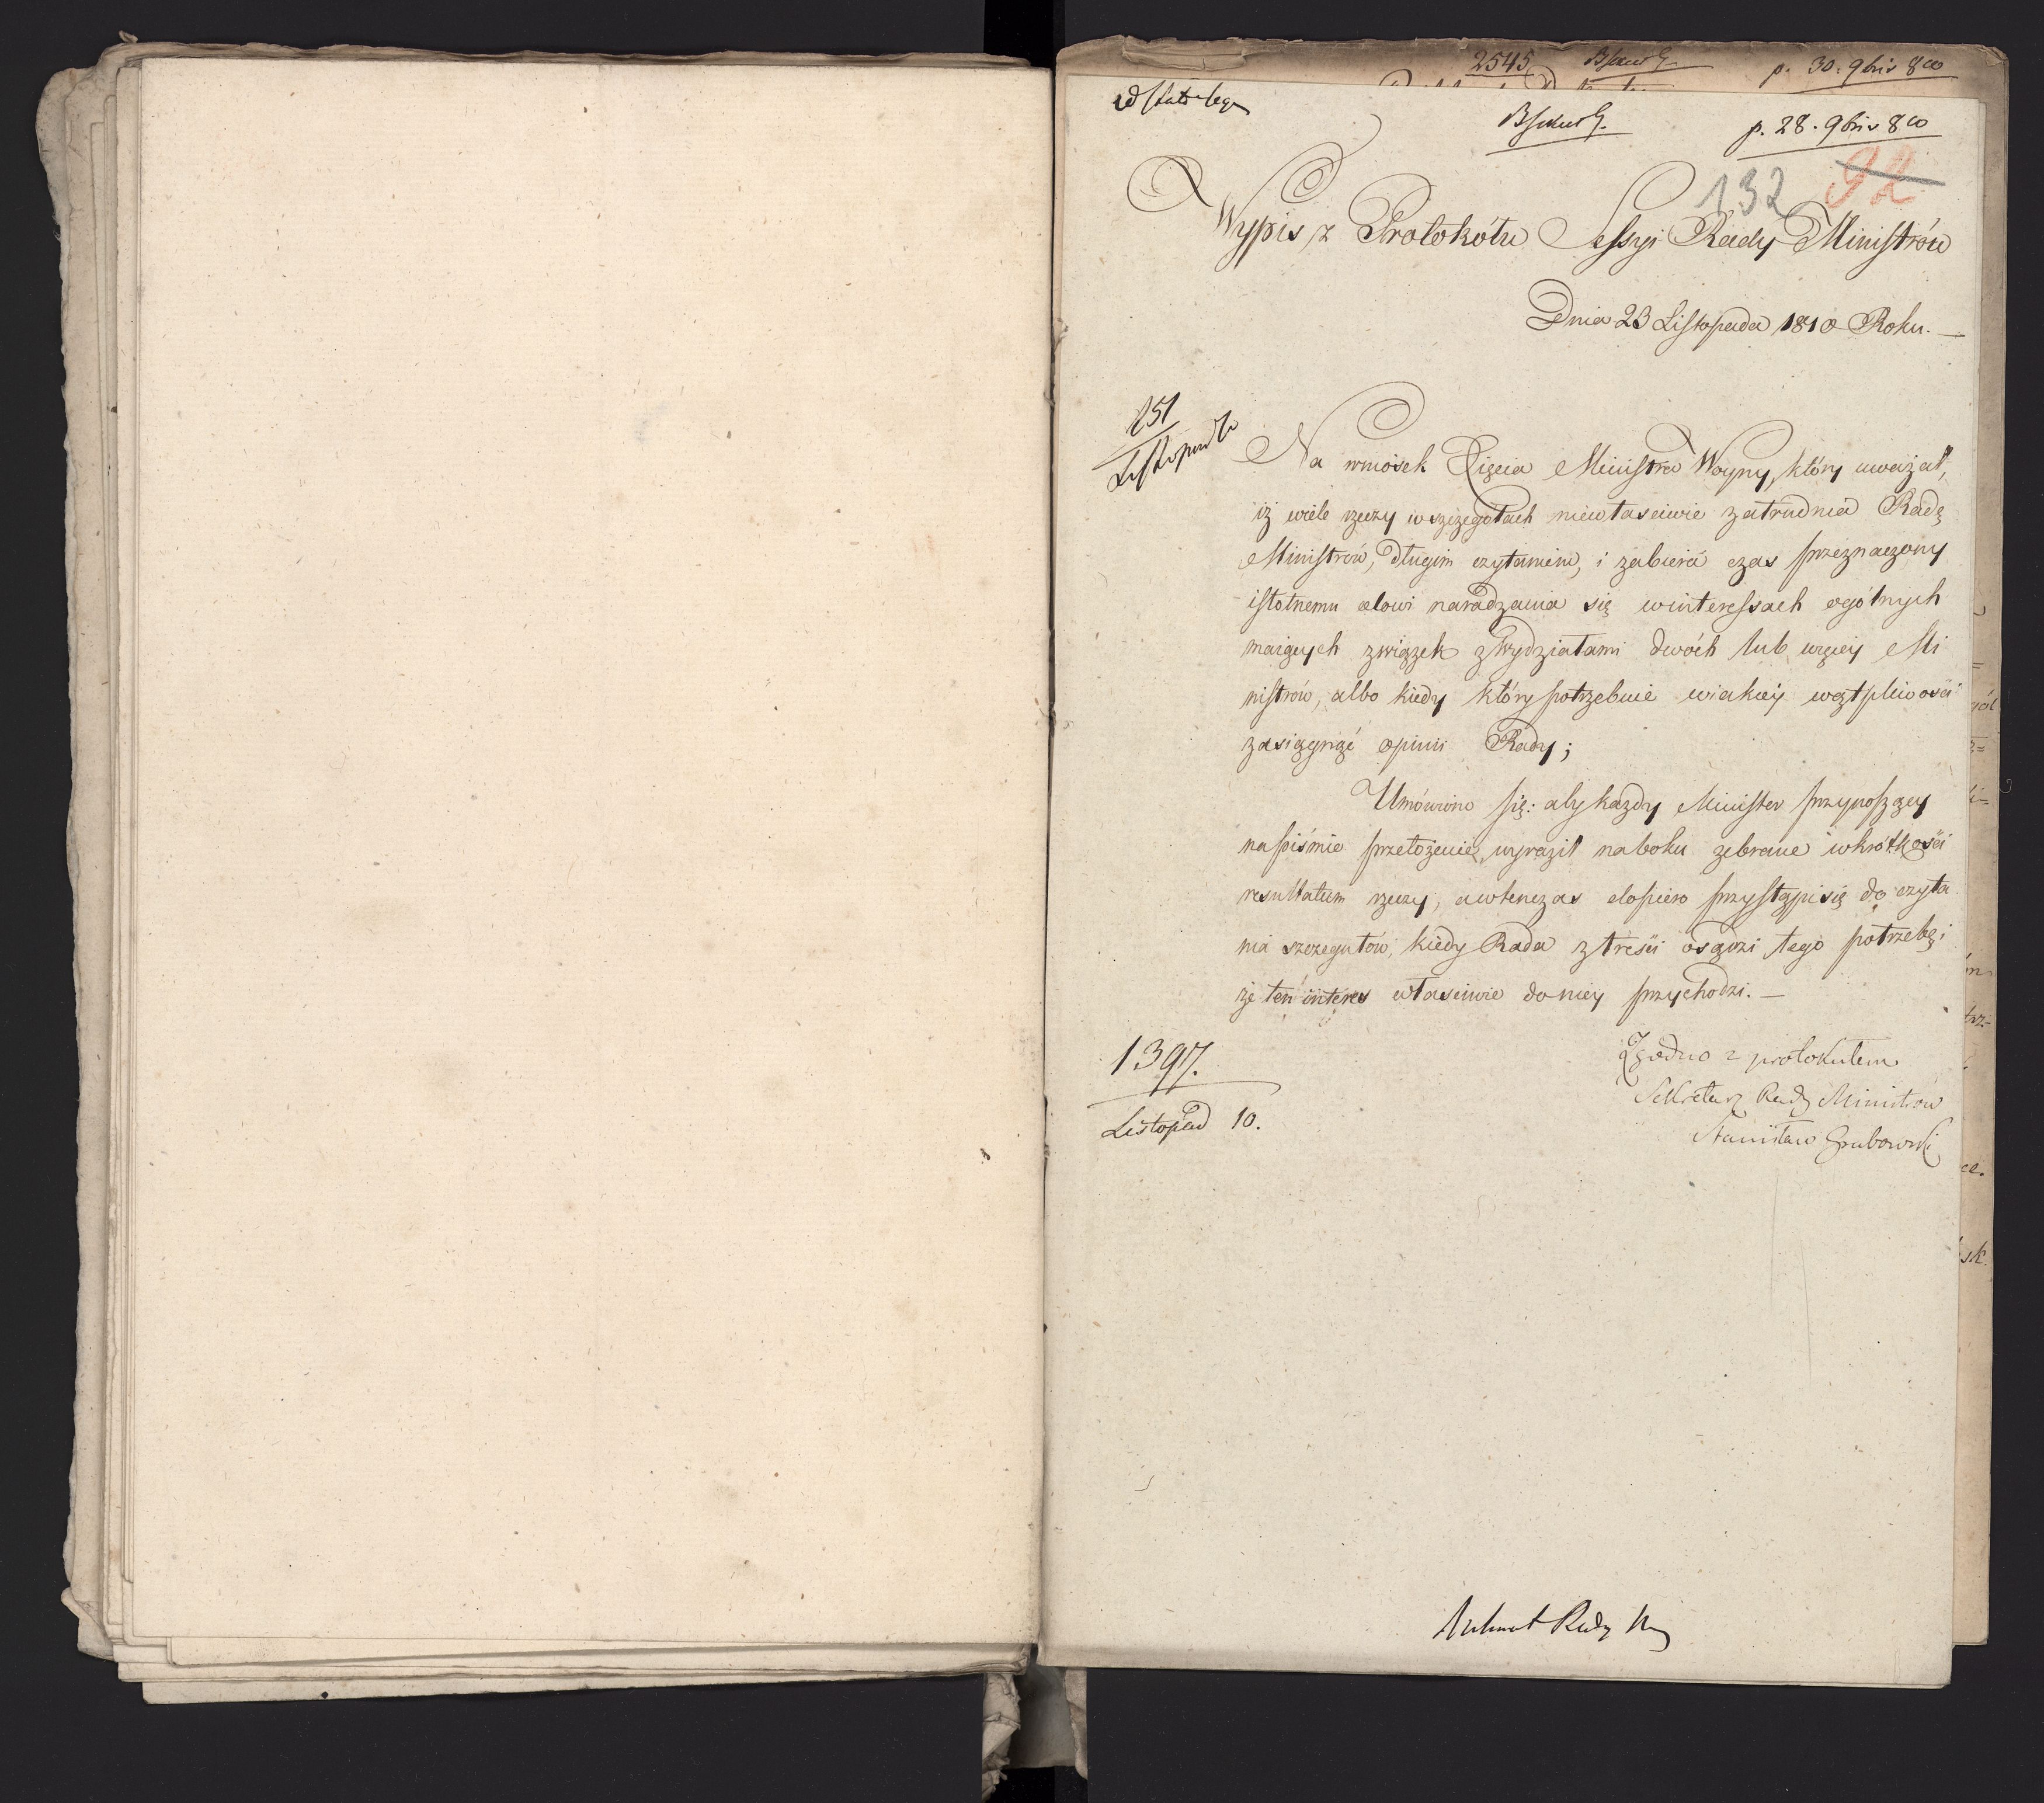 2545
p. 30. 9bris 810
p. 28. 9bris 810
132 92
Wypis z Protokółu Sessyi Rady Ministrów
Dnia 23 Listopada 1810 Roku. —
151
Listopada
Na wniosek Xięcia Ministra Woyny, który uważał,
iż wiele rzeczy w szczegółach niewłaściwie zatrudnia Radę
Ministrów, długim czytaniem, i zabiera czas przeznaczony
istotnemu celowi naradzania się winteressach ogólnych
maiących związek zWydziałami dwóch lub więcey Mi
nistrów, albo kiedy który potrzebuie wiakiey wątpliwości
zasięgnąć opinii Rady;
Umówiono się: aby każdy Minister przynoszący
napiśmie przełożenie, wyraził naboku zebrane wkrótkości
resultatum rzeczy, awtenczas dopiero przystąpi się do czyta
nia szczegułów, kiedy Rada ztreści osądzi tego potrzebę, i
że ten interes właściwie doniey przychodzi. —
1397.
Listopad 10.
Zgodno z protokułem
Sekretarz Rady Ministrów
Stanisław Grabowski